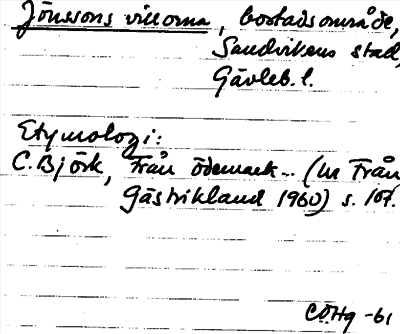 Jönssons villorna, bostadsområde,
Sandvikens stad,
Gävleb. l.
Etymologi:
C. Björk, Från ödemark... (ur Från
Gästrikland 1960) s. 107.
CÖHg -61